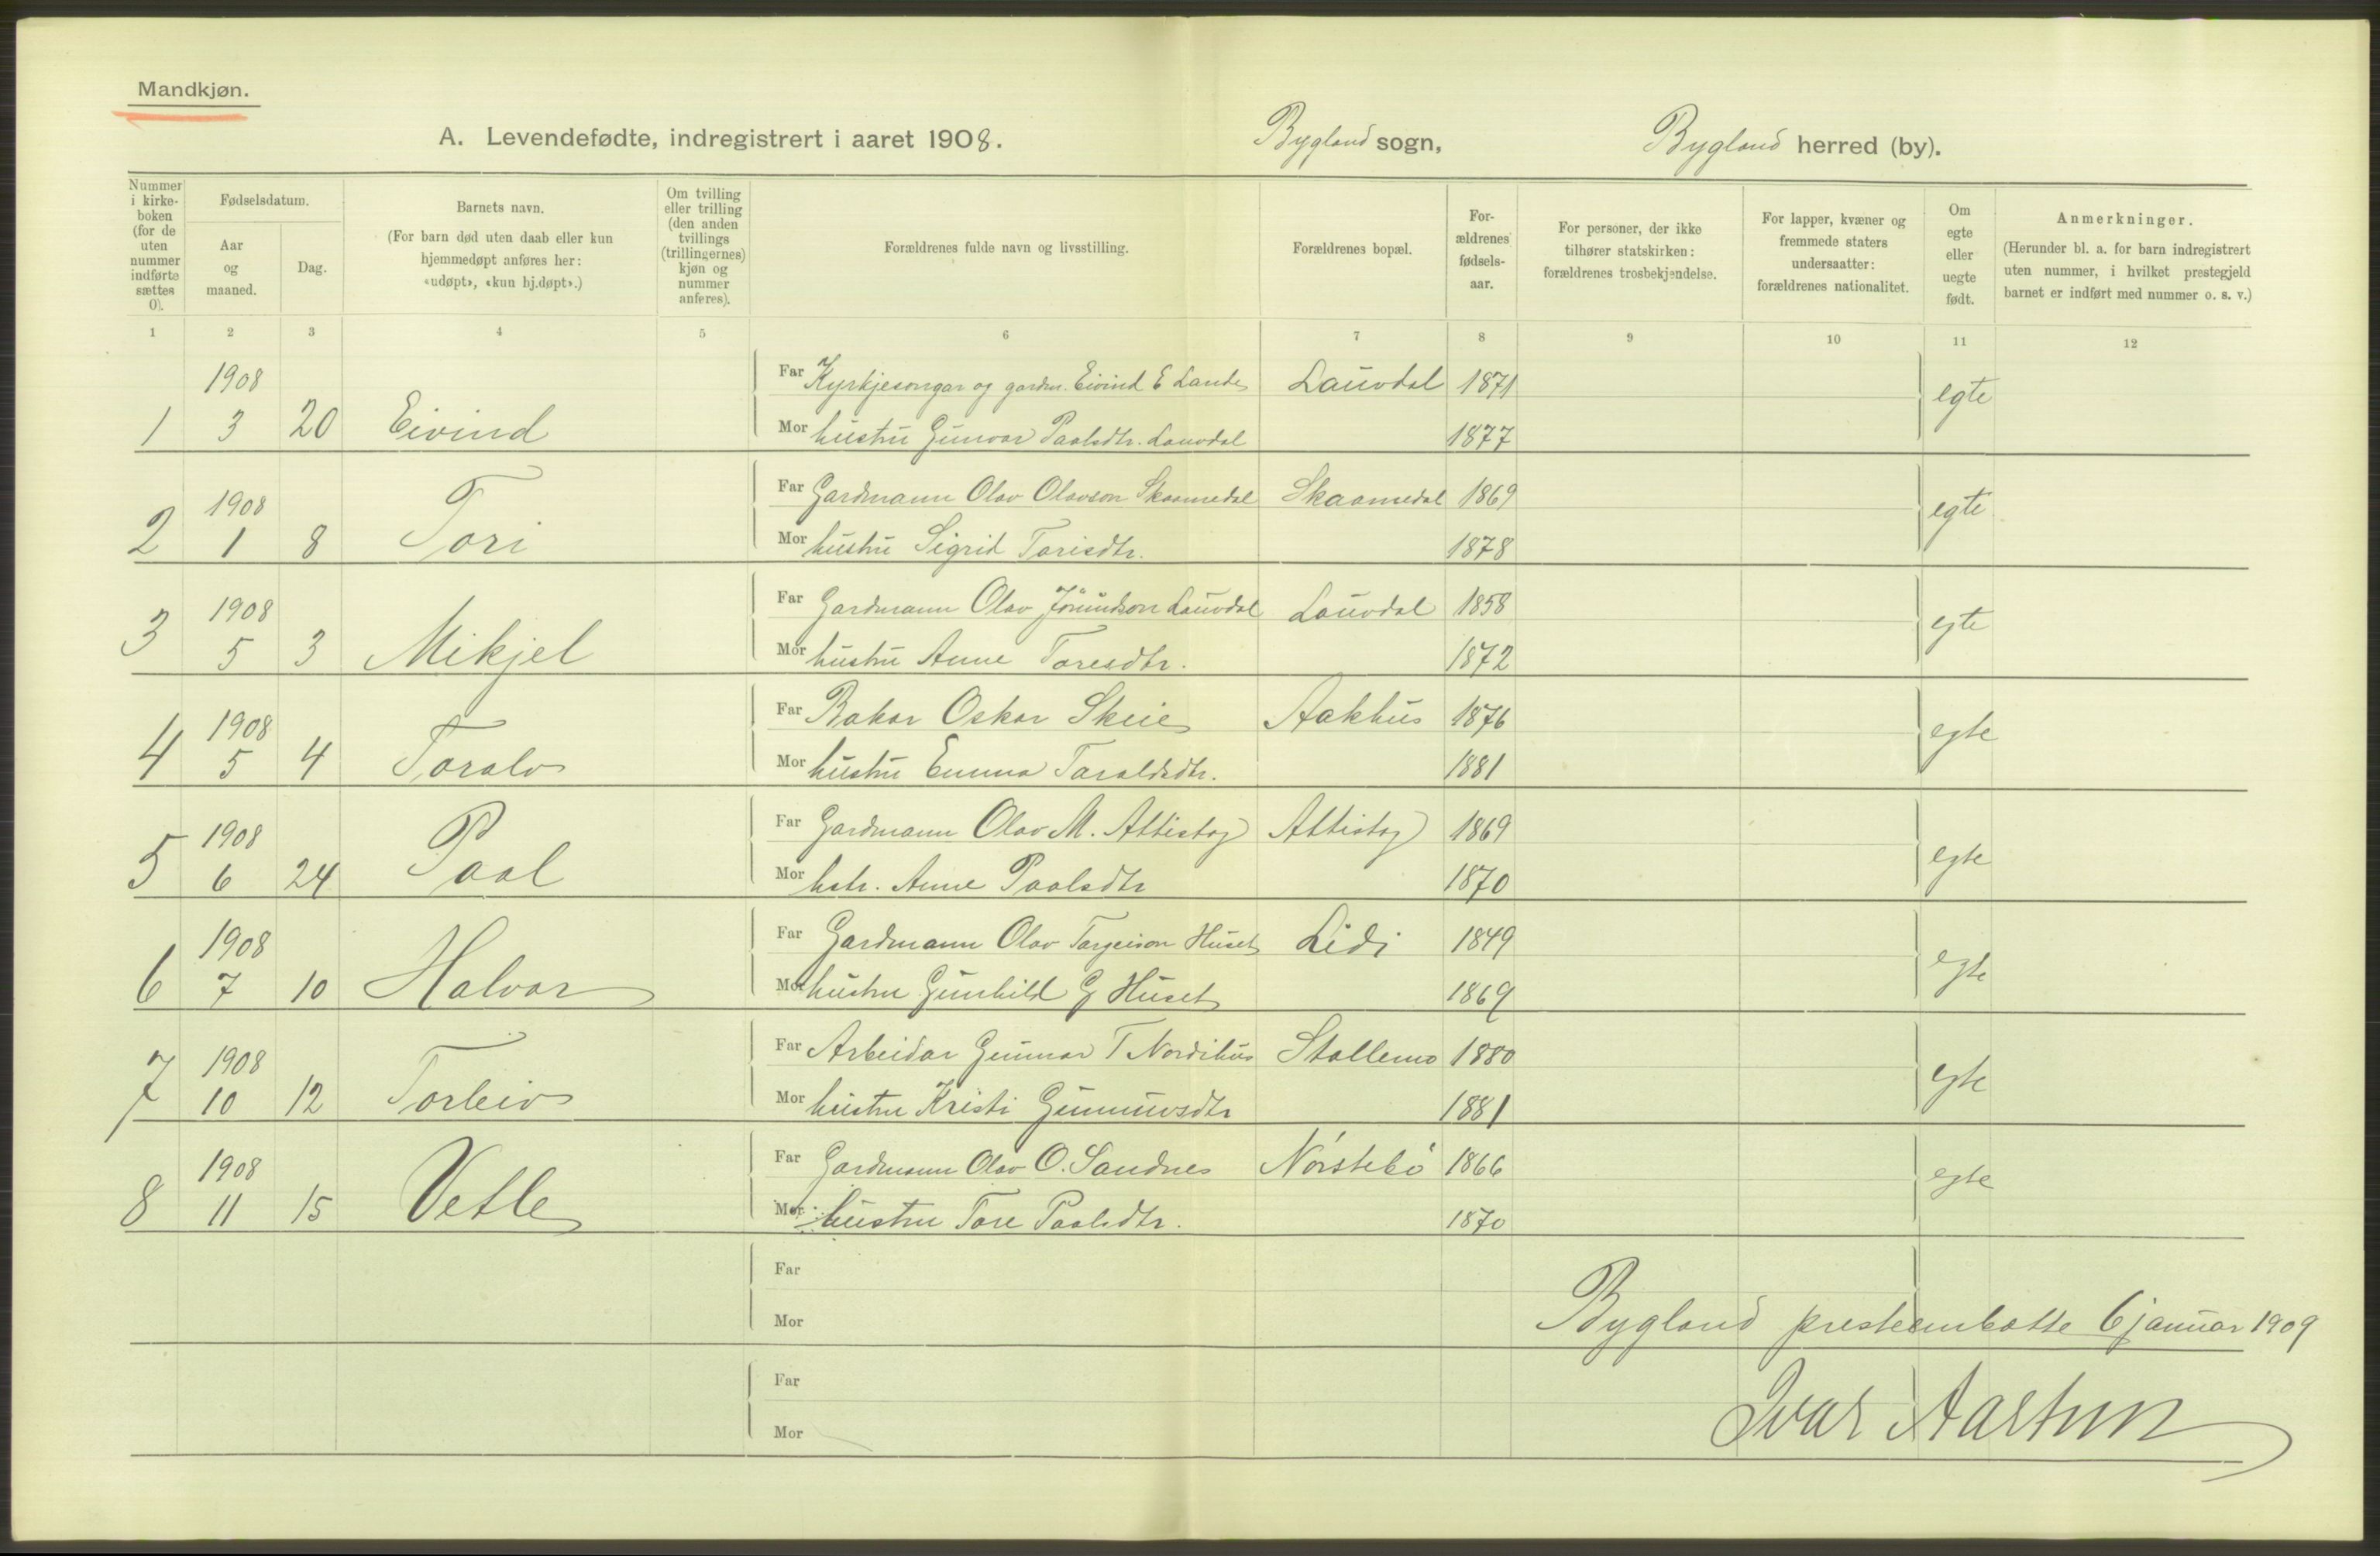 Mandkjøn.
A. Levendefødte, indregistrert i aaret 1908. Bygland sogn, Bygland herred (by).
Nummer i kirke-boken (for de uten nummer indførte sættes 0).
Fødselsdatum.
Aar og maaned.
Dag.
Barnets navn.
(For barn død uten daab eller kun hjemmedøpt anføres her: «udøpt», «kun hj.døpt».)
Om tvilling eller trilling (den anden tvillings (trillingernes) kjøn og nummer anføres).
Forældrenes fulde navn og livsstilling.
Forældrenes bopæl.
For-ældrenes fødsels-aar.
For personer, der ikke tilhører statskirken: forældrenes trosbekjendelse.
For lapper, kvæner og fremmede staters undersaatter: forældrenes nationalitet.
Om egte eller uegte født.
Anmerkninger.
(Herunder bl. a. for barn indregistrert uten nummer, i hvilket prestegjeld barnet er indført med nummer o. s. v.)
1 2 3 4 5 6 7 8 9 10 11 12
1908 Far Kyrkjesongar og gardm. Eivind E Lande Lauvdal 1871 egte
1 3 20 Eivind Mor hustru Gunvor Paalsdtr. Lauvdal 1877
1908 Far Gardmann Olav Olavson Skaamedal Skaamedal 1869 egte
2 1 8 Tori Mor hustru Sigrid Torisdtr. 1878
1908 Far Gardmann Olav Jörundson Lauvdal Lauvdal 1858 egte
3 5 3 Mikjel Mor hustru Anne Toresdtr. 1872
1908 Far Bakar Oskar Skeie Aakhus 1876 egte
4 5 4 Toralv Mor hustru Emma Taraldsdtr. 1881
1908 Far Gardmann Olav M. Attistog Attistog 1869 egte
5 6 24 Paal Mor hstr. Anne Paalsdtr 1870
1908 Far Gardmann Olav Targeison Huset Lidi 1849 egte
6 7 10 Halvor Mor hustru Gunhild G Huset 1869
1908 Far Arbeidar Gunnar T Nordihus Stallemo 1880 egte
7 10 12 Torleiv Mor hustru Kristi Gunnuvsdtr 1881
1908 Far Gardmann Olav O. Sandnes Nórstebó 1866 egte
8 11 15 Vetle Mor hustru Tore Paalsdtr. 1870
Far
Mor
Bygland presteembatte 6 januar 1909
Far
Ivar Aartun
Mor